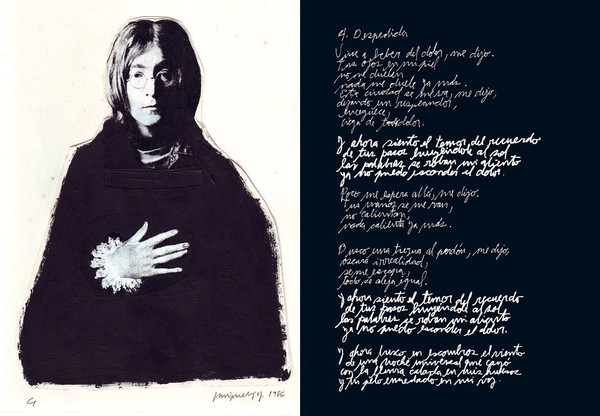 4. Despedida
Vine a beber del dolor, me dijo.
Tus ojos en mi piel
no me duelen
nada me duele ya más.
Esta ciudad se me va, me dijo,
dejando un resplandor,
enceguece,
ciega de todo dolor.
Y ahora siento el temor del recuerdo
de tus pasos huyéndole al sol
las palabras se roban mi aliento
ya no puedo esconder el dolor.
Poco me espera allá, me dijo.
Tus manos se me van,
no calientan,
nada calienta ya más.
Busco una tregua, al perdón, me dijo,
oscura irrealidad,
se me escapa,
todo se aleja igual.
Y ahora siento el temor del recuerdo
de tus pasos huyéndole al sol,
las palabras se roban mi aliento
ya no puedo esconder el dolor.
Y ahora busco en escombros el viento
de una noche universal que cayó
con la lluvia calada en mis huesos
y tu pelo enredado en mi voz.
1986